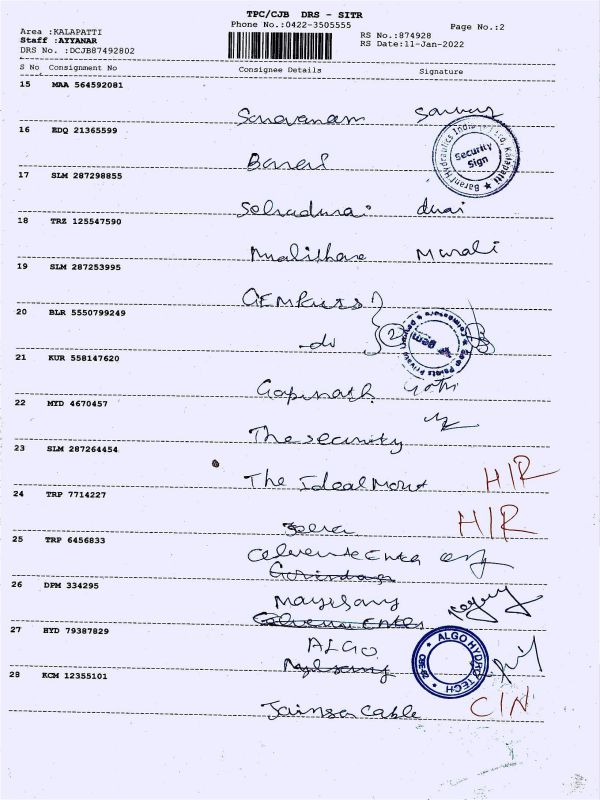 TPC/CJB DRS - SITR
Phone No.:0422-3505555
Page No.:2
Area :KALAPATTI
Staff :AYYANAR
DRS No. :DCJB87492802
RS No.:874928
RS Date:11-Jan-2022
S No Consignment No Consignee Details Signature
15 MAA 564592081
Saravanam
16 EDQ 21365599
Security Sign
17 SLM 287298855
Selvadurai durai
18 TRZ 125547590
Murali
19 SLM 287253995
20 BLR 5550799249
do
21 KUR 558147620
Gopinath Gopi
22 MYD 4670457
The security
23 SLM 287264454
The Ideal H/R
24 TRP 7714227
H/R
25 TRP 6456833
26 DPM 334295
27 HYD 79387829
ALGO
ALGO HYDRO TECH
28 KCM 12355101
C/N
Cable